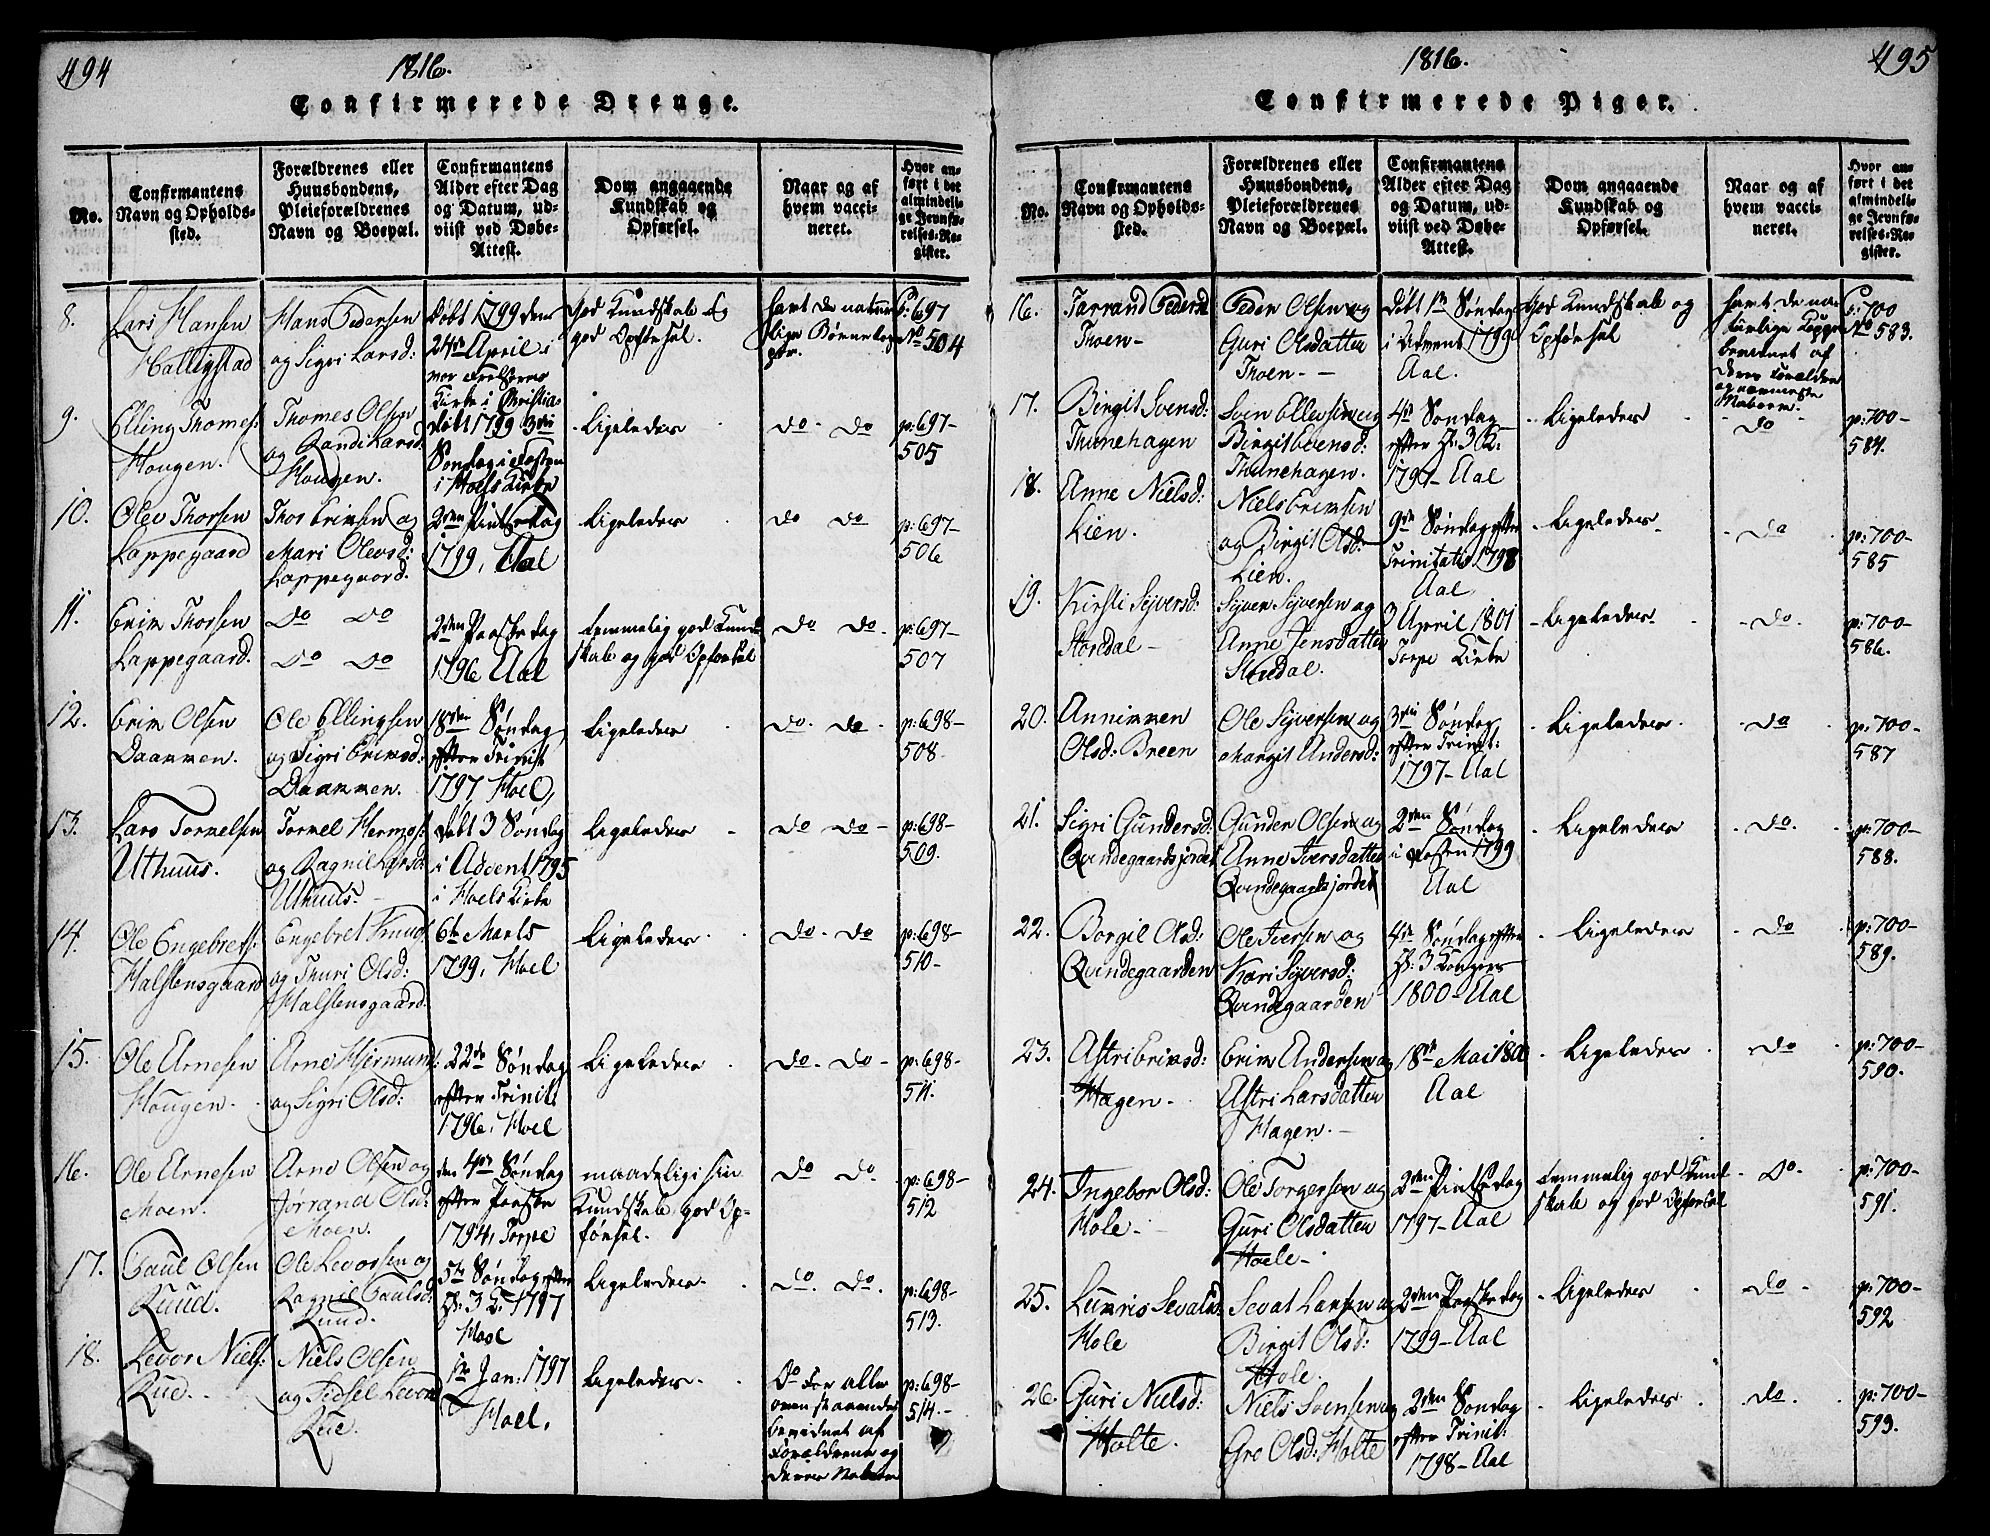 494
1816.
Confirmerede Drenge.
No.
Confirmantens Navn og Opholds-sted.
Forældrenes eller Huusbondens, Pleieforældrenes Navn og Boepæl.
Confirmantens Alder efter Dag og Datum, ud-viist ved Døbe-Attest.
Dom angaaende Kundskab og Opførsel.
Naar og af hvem vacci-neret.
Hvor an-ført i det almindeli-ge Jevnfø-relses-Re-gister.
8.
Lars Hansen
Halligstad
Hans Pedersen
og Sigri Larsd:
Døbt 1799 den
24de April i
vor Frelsers
Kirke i Christia
God Kundskab og
god Opførsel.
havt de natur
lige Børnekop
per.
P: 697
No 504
9.
Elling Thomes:
Hougen.
Thomes Olsen
og Randi Larsd:
Hougen.
Døbt 1799 3die
Søndag i Fasten
i Hoels Kirke
Ligeledes
do. do
p: 697-
505
10.
Olev Thorsen
Lappegaard
Thor Erimsen og
Mari Olevsd:
Lappegaard.
2den Pintsedag
1799, Aal
Ligeledes
do do
p: 697-
506
11.
Erim Thorsen
Lappegaard.
do do
do do
2den Paaskedag
1796 Aal
temmelig god Kund
skab og god Opførsel
do do.
p: 697-
507
12.
Erim Olsen
Daammen.
Ole Ellingsen
og Sigri Erimsd:
Daammen.
18den Søndag
efter Trinit
1797 Hoel,
Ligeledes
do. do
p: 698-
508.
13.
Lars Tormelsen
Uthuus.
Tormel Hermos:
og Ragnil Larsd:
Uthuus.
Døbt 3 Søndag
i Advent 1795
i Hoels Kirke
Ligeledes
do do
p: 698-
509.
14.
Ole Engebrets:
Halstensgaard
Engebret Knuds:
og Thuri Olsd:
Halstensgaard.
6te Marts
1799, Hoel
Ligeledes
do. do
p: 698-
510-
15.
Ole Arnesen
Hougen.
Arne Hjermund:
og Sigri Olsd:
22de Søndag
efter Trinit:
1796, Hoel
Ligeledes
do. do
p: 698-
511.
16.
Ole Arnesen
Moen.
Arne Olsen og
Jørrand Olsd:
Moen.
den 4de Søndag
efter Paaske
1794, Torpe
maadelig i sin
Kundskab, god Op-
førsel.
do do.
p: 698-
512
17.
Paul Olsen
Ruud.
Ole Levorsen og
Ragnil Paulsd:
Ruud.
5te Søndag efter
H: 3 K: 1797
Hoel
Ligeledes.
do. do.
p: 698-
513.
18.
Levor Niels:
Rue.
Niels Olsen
og Sidsel Levor
Rue.
1te Jan: 1797
Hoel.
Ligeledes.
Do For alle
ovenstaaende
bevidnet af
Forældrene og
deres Naboer
p: 698-
514.-
495
1816.
Confirmerede Piger.
No.
Confirmantens Navn og Opholds-sted.
Forældrenes eller Huusbondens, Pleieforældrenes Navn og Boepæl.
Confirmantens Alder efter Dag og Datum, ud-viist ved Døbe-Attest.
Dom angaaende Kundskab og Opførsel.
Naar og af hvem vacci-neret.
Hvor an-ført i det almindeli-ge Jevnfø-relses-Re-gister.
16.
Jarrand Pedersd
Thoen-
Peder Olsen og
Guri Olsdatter
Thoen-
Døbt 1te Søndag
i Advent 1799
Aal.
God Kundskab og
Opførsel
havt de na-
turlige Kopper
bevidnet af
deres Forældre
og nærmeste
Naboer.
P: 700
No 583.
17.
Birgit Svensd:
Thunehagen
Sven Ellevsen og
Birgit Svensd:
Thunehagen.
4de Søndag
efter H: 3 K:
1797- Aal
Ligeledes
do
p: 700-
584.
18.
Anne Nielsd:
Lien.
Niels Erimsen
og Birgit Olsd:
Lien.
9de Søndag efter
Trinitatis 1798
Aal
Ligeledes
do
p: 700-
585
19.
Kirsti Sijversd:
Stordal-
Sijver Sijversen og
Anne Jensdatter
Stordal.
3 April 1801
Torpe Kirke
Ligeledes
do.
p: 700-
586.
20.
Annimmen
Olsd: Breen
Ole Sijversen og
Margit Andersd:
3die Søndag
efter Trinit:
1797- Aal
Ligeledes.
do
p: 700-
587
21.
Sigri Gundersd:
Qvindegaardsjordet
Gunder Olsen og
Anne Iversdatter
Qvindegaardsjordet
2den Søndag
i Fasten 1799
Aal
Ligeledes
do.
p: 700-
588.
22.
Borgil Olsd:
Qvindegaarden
Ole Iversen og
Kari Sijversd:
Qvindegaarden
4de Søndag efter
H: 3 Konger
1800- Aal
Ligeledes
do
p: 700-
589.
23.
Astri Erimsd:
Hagen-
Erim Andersen og
Astri Larsdatter
Hagen.-
18de Mai 180
Aal
Ligeledes
do
p: 700-
590.
24.
Ingebor Olsd:
Hole-
Ole Torgersen og
Guri Olsdatter
Hole-
2den Pintsedag
1797- Aal
temmelig god Kund
skab og god Opførsel
Do
p: 700-
591.
25.
Lunris Sevatsd:
Hole
Sevat Larsen og
Birgit Olsd:
Hole.
2den Paaskedag
1799- Aal
Ligeledes
do
p: 700-
592
26.
Guri Nielsd:
Holte.
Niels Svensen og
Gro Olsd: Holte
2den Søndag
efter Trinit:
1798- Aal
Ligeledes
do
p: 700-
593.